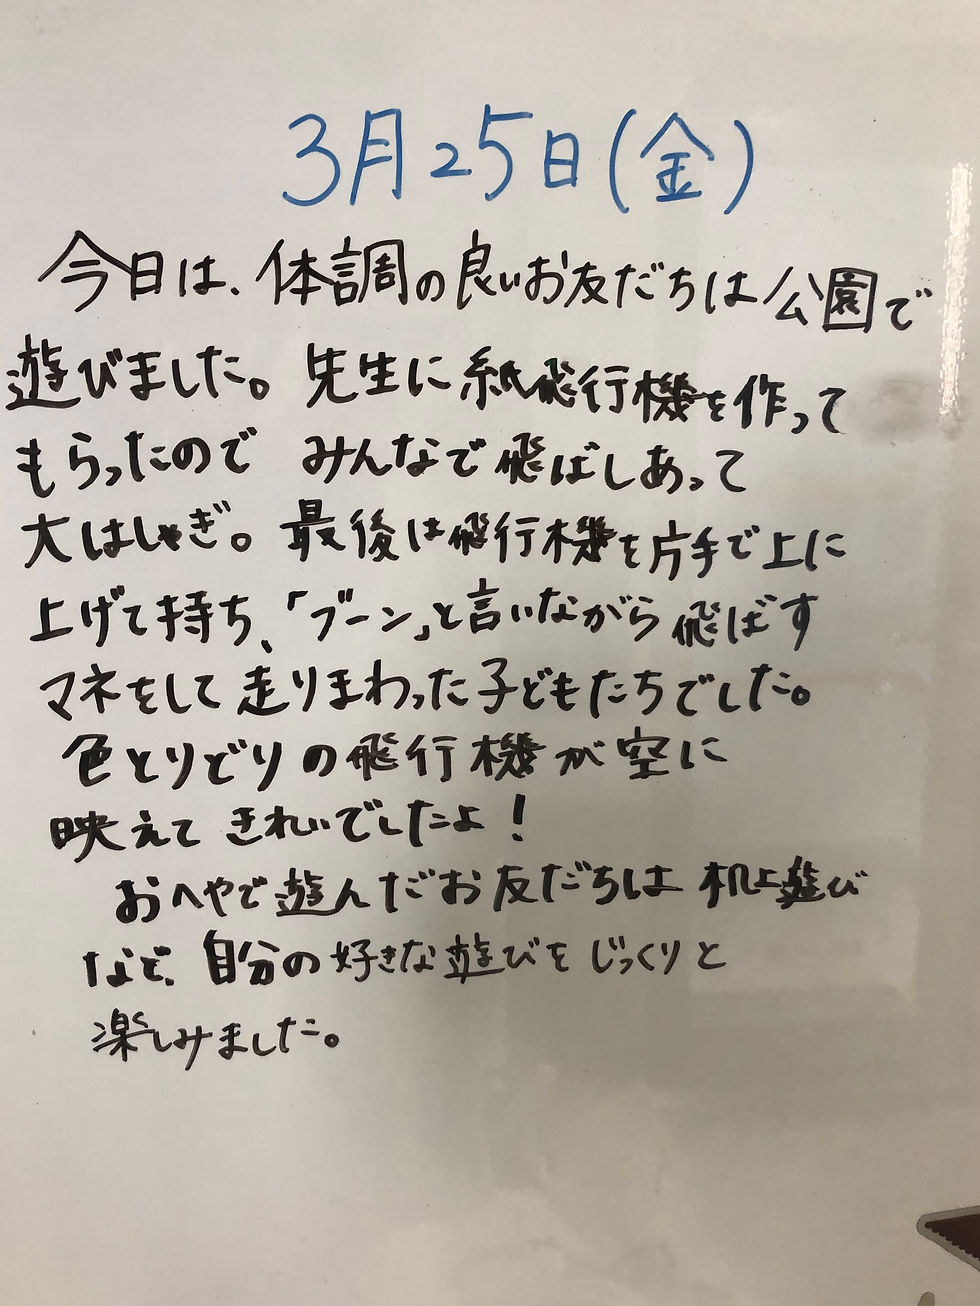 3月25日(金)
今日は、体調の良いお友だちは公園で
遊びました。先生に紙飛行機を作って
もらったので みんなで飛ばしあって
大はしゃぎ。最後は飛行機を片手で上に
上げて持ち、「ブーン」と言いながら飛ばす
マネをして走りまわった子どもたちでした。
色とりどりの飛行機が空に
映えてきれいでしたよ!
おへやで遊んだお友だちは机上遊び
など、自分の好きな遊びをじっくりと
楽しみました。